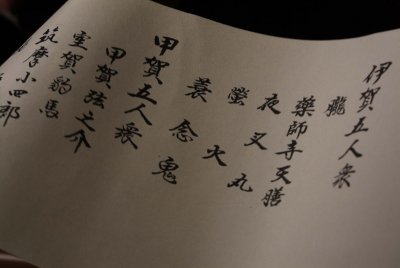 伊賀五人衆
朧
藥師寺天膳
夜叉丸
螢火
蓑念鬼
甲賀五人衆
甲賀弦之介
室賀豹馬
筑摩小四郎